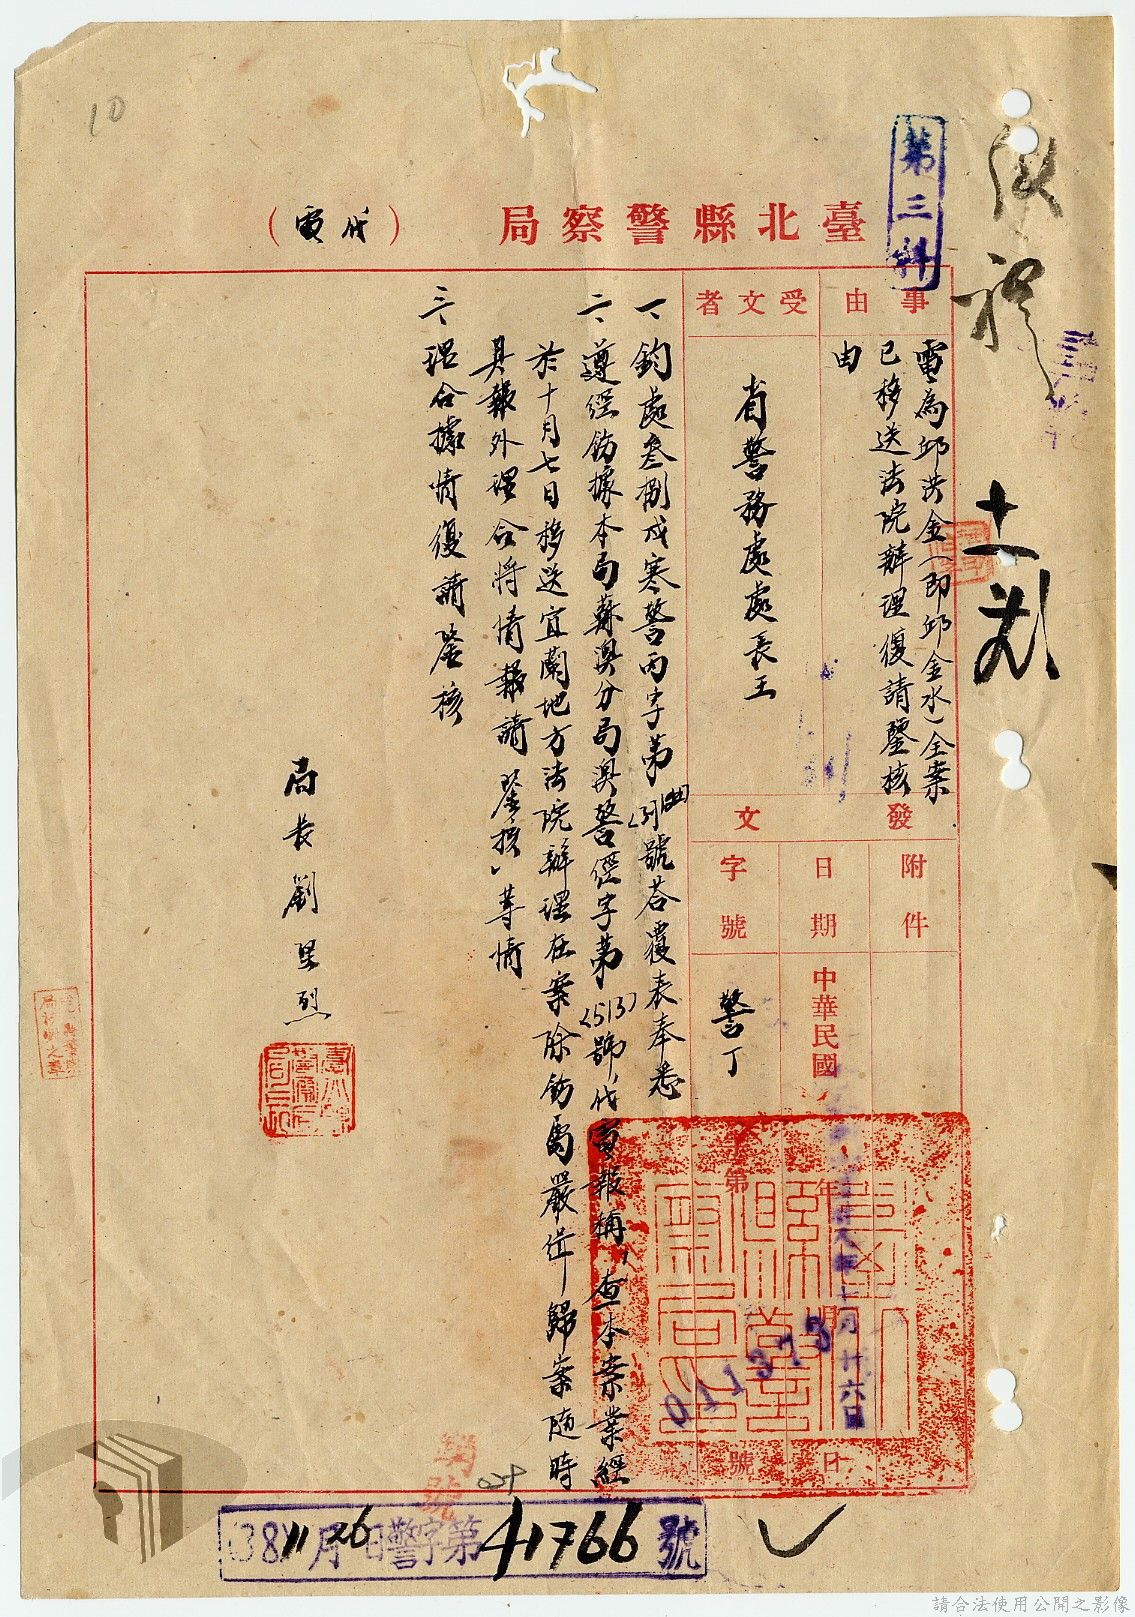 10
第三科
臺北縣警察局（代電）
事由
電為邱洪金（即邱金水）全案
已移送法院辦理復請鑒核
由
受文者
省警務處處長王
發文
附件
日期
中華民國 年 月 日
十一月廿六日
字號
警丁 第 號
011373
一、鈞處叁捌戌寒警丙字第 號荅覆表奉悉
二、遵經飭據本局蘇澳分局澳警經字第(513)號代電報稱，查本案業經
於十月七日移送宜蘭地方法院辦理在案除飭屬嚴緝歸案隨時
具報外理合將情報請 鑒核」等情
三、理合據情復請鑒核
局長劉堅烈
38 11月26日警字第41766號
請合法使用公開之影像